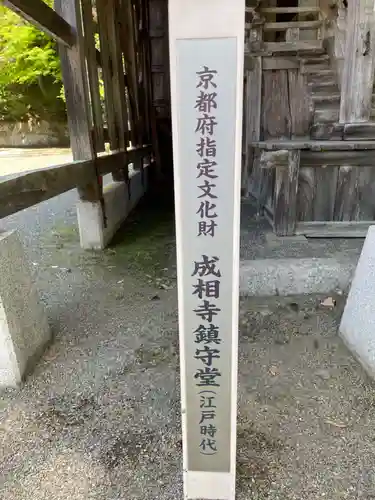 京都府指定文化財　成相寺鎮守堂（江戸時代）